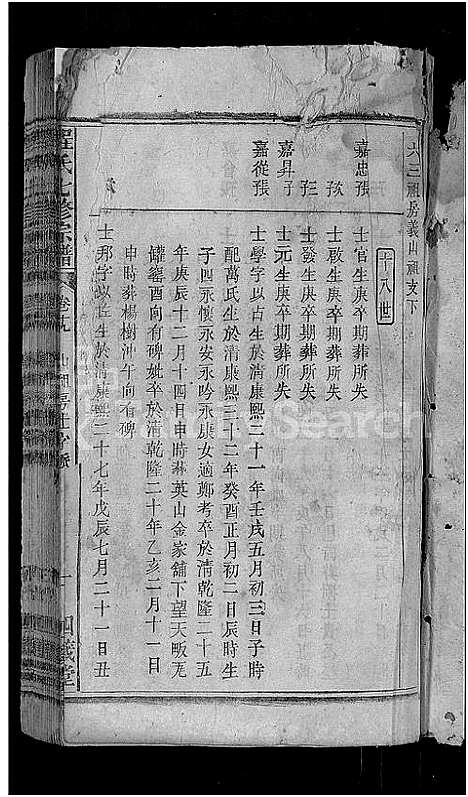 六三祖房義山祖支下
十八世
嘉忠孫 士官生庚卒期葬所失
孫 士啟生庚卒期葬所失
嘉昇子 士發生庚卒期葬所失
嘉從孫 士元生庚卒期葬所失
士學字以占生於清康熙二十一年壬戌五月初三日子時
配萬氏生於清康熙三十二年癸酉正月初二日辰時生
子四永懷永安永吟永康女適鄭考卒於清乾隆二十五
年庚辰十二月十四日申時葬英山金家舖下望天畈
罐窰酉向有碑妣卒於清乾隆二十年乙亥二月十一日
申時葬楊樹沖午向有碑
士邦字以佐生於清康熙二十七年戊辰七月二十一日丑
程氏七修宗譜
Search